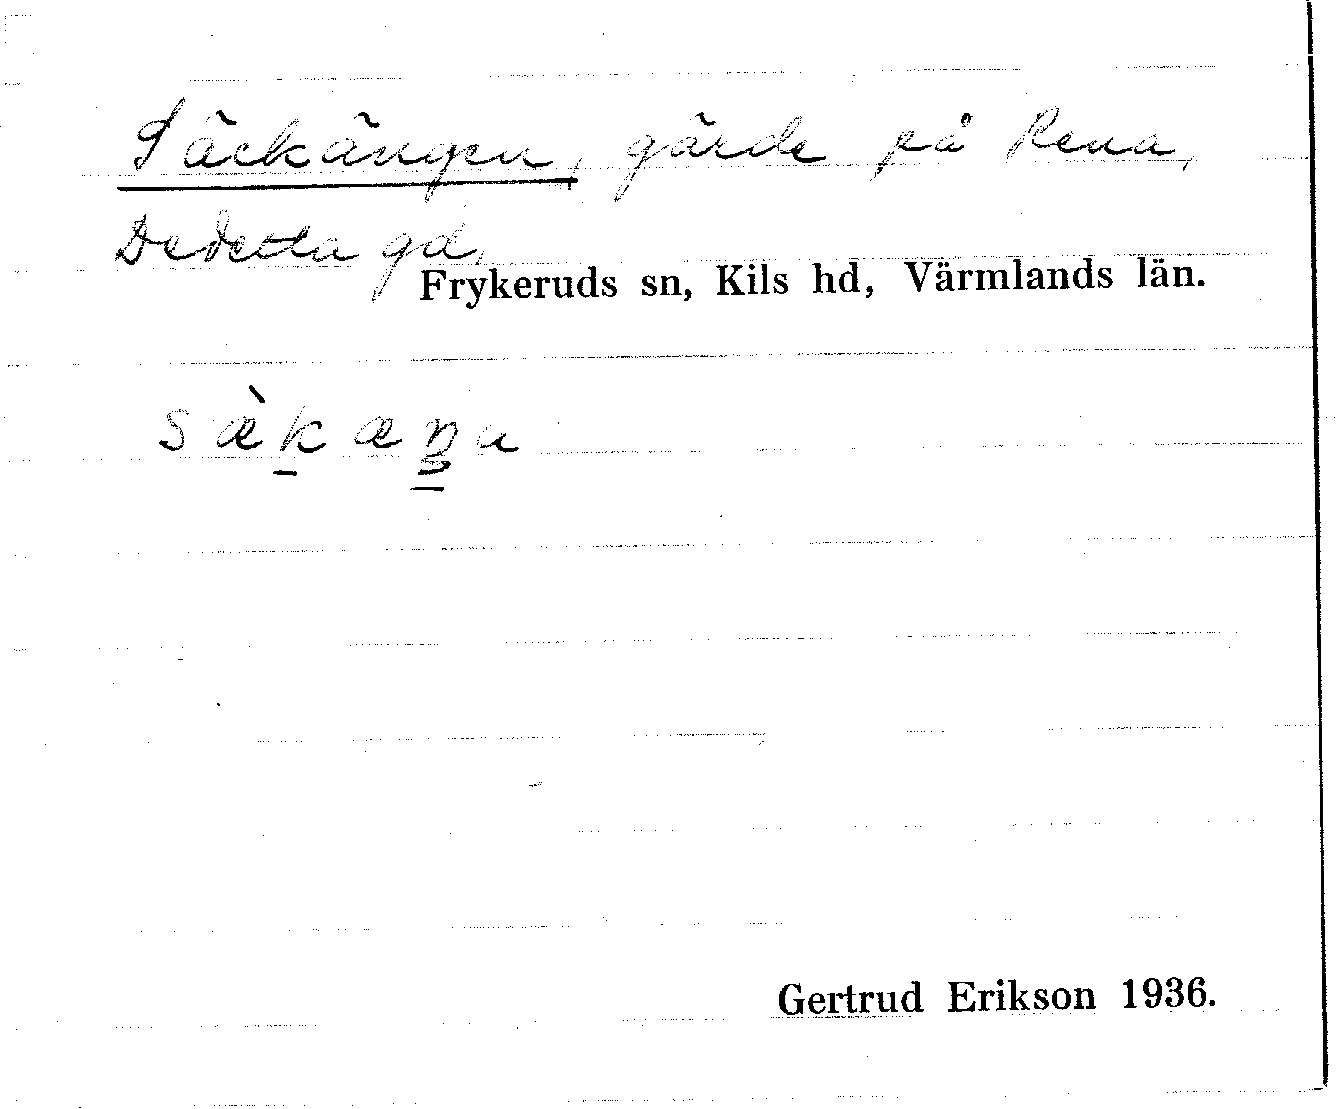 Säckängen, gärde på Rena,
gd,
Frykeruds sn, Kils hd, Värmlands län.
sæ̀k̠æŋ̠u
Gertrud Erikson 1936.